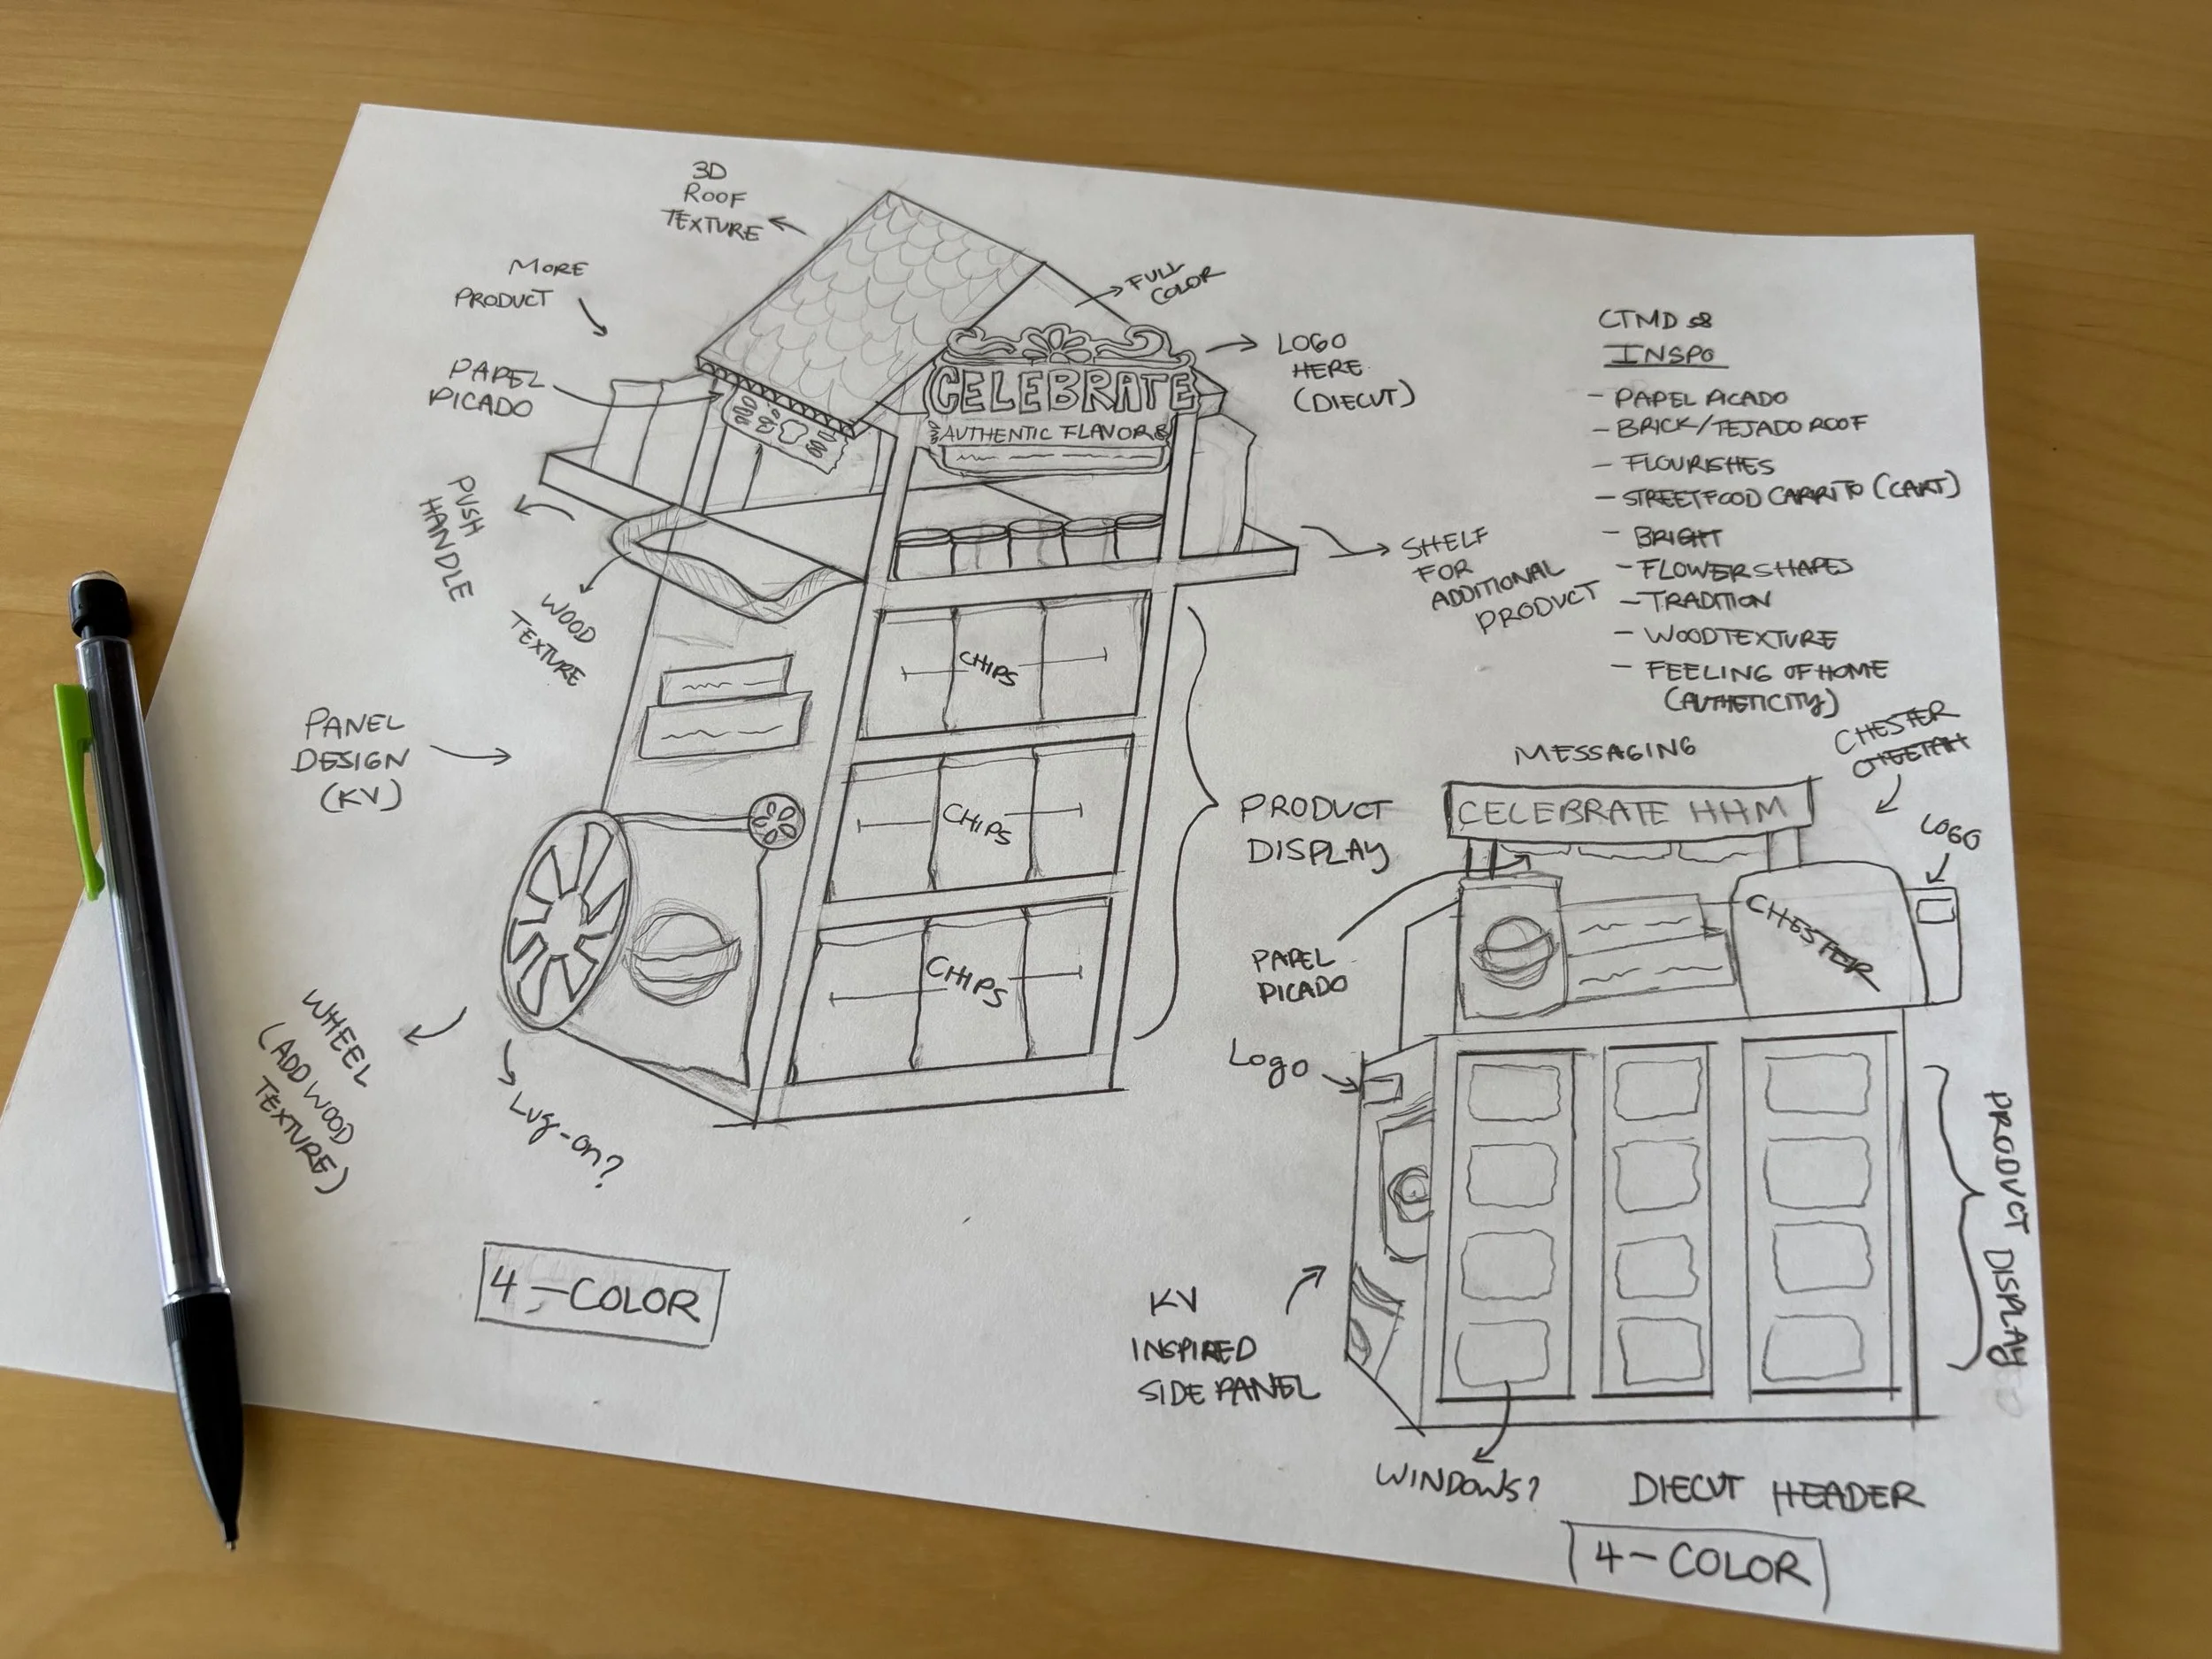 3D
ROOF
TEXTURE
MORE
PRODUCT
PAPEL
PICADO
FULL
COLOR
LOGO
HERE
(DIECUT)
CELEBRATE
AUTHENTIC FLAVORS
PUSH
HANDLE
WOOD
TEXTURE
SHELF
FOR
ADDITIONAL
PRODUCT
CHIPS
CHIPS
CHIPS
PANEL
DESIGN
(KV)
PRODUCT
DISPLAY
WHEEL
(ADD WOOD
TEXTURE)
Lug-on?
4-COLOR
INSPO
- PAPEL PICADO
- BRICK/TEJADO ROOF
- FLOURISHES
- STREETFOOD CARRITO (CART)
- BRIGHT
- FLOWER SHAPES
- TRADITION
- WOOD TEXTURE
- FEELING OF HOME
(AUTHETICITY)
MESSAGING
CHESTER
CHEETAH
CELEBRATE HHM
LOGO
CHESTER
PAPEL
PICADO
Logo
PRODUCT DISPLAY
KV
INSPIRED
SIDE PANEL
WINDOWS?
DIECUT HEADER
4-COLOR